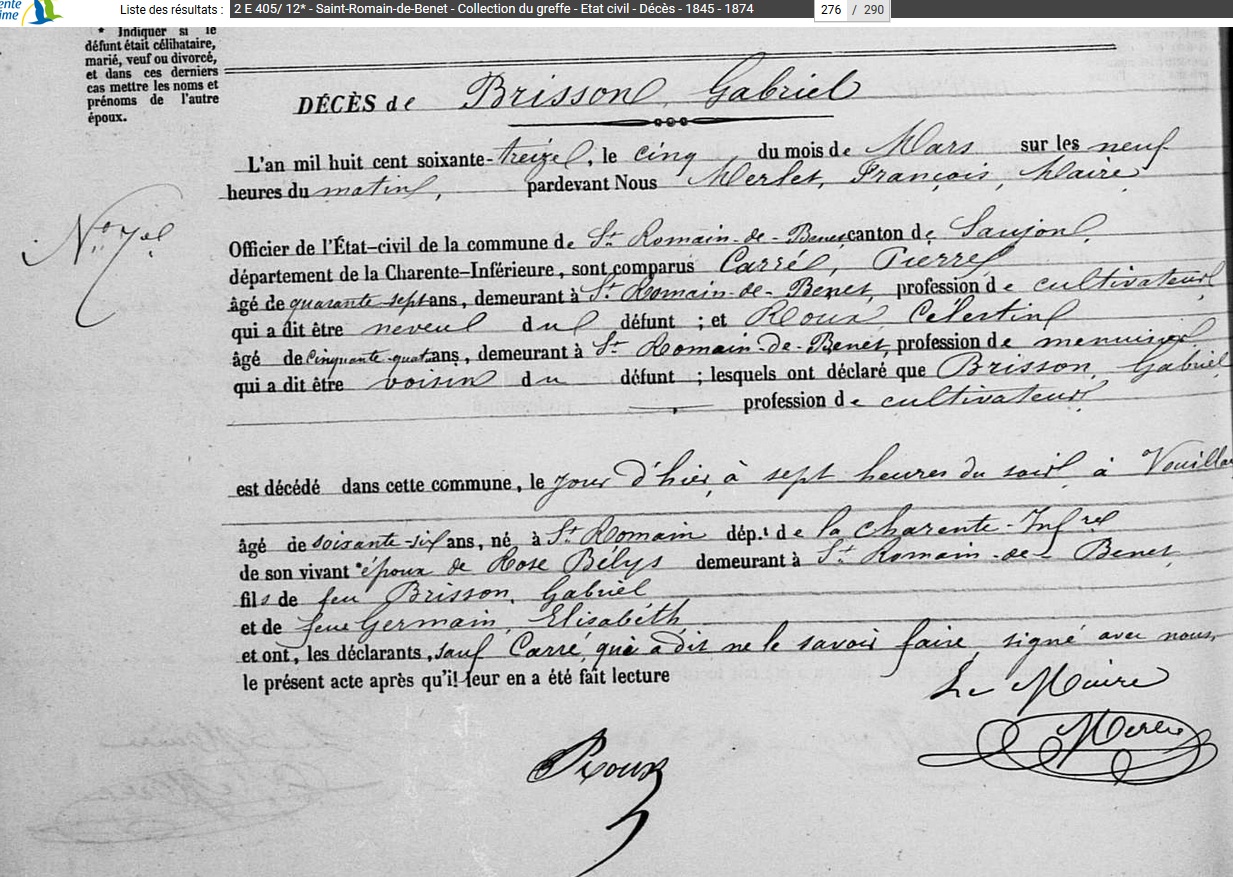 Liste des résultats : 2 E 405/ 12* - Saint-Romain-de-Benet - Collection du greffe - Etat civil - Décès - 1845 - 1874 276 / 290
* Indiquer si le
défunt était célibataire,
marié, veuf ou divorcé,
et dans ces derniers
cas mettre les noms et
prénoms de l'autre
époux.
DÉCÈS de Brisson, Gabriel
L'an mil huit cent soixante-treize, le cinq du mois de Mars sur les neuf
heures du matin, pardevant Nous Merlet, François, Maire
Officier de l'État-civil de la commune de St Romain-de-Benet canton de Saujon,
département de la Charente-Inférieure, sont comparus Carré, Pierre
âgé de quarante-sept ans, demeurant à St Romain-de-Benet, profession de cultivateur
qui a dit être neveu du défunt ; et Roux, Célestin
âgé de cinquante-quatre ans, demeurant à St Romain-de-Benet, profession de menuisier
qui a dit être voisin du défunt ; lesquels ont déclaré que Brisson, Gabriel,
profession de cultivateur
est décédé dans cette commune, le jour d'hier, à sept heures du soir, à
âgé de soixante-six ans, né à St Romain dép.t de la Charente-Infre
de son vivant * époux de Rose Bélys demeurant à St Romain-de-Benet
fils de feu Brisson, Gabriel
et de feue Germain, Elisabéth
et ont, les déclarants, sauf Carré, qui a dit ne le savoir faire, signé avec nous,
le présent acte après qu'il leur en a été fait lecture
Le Maire
Roux
Merlet